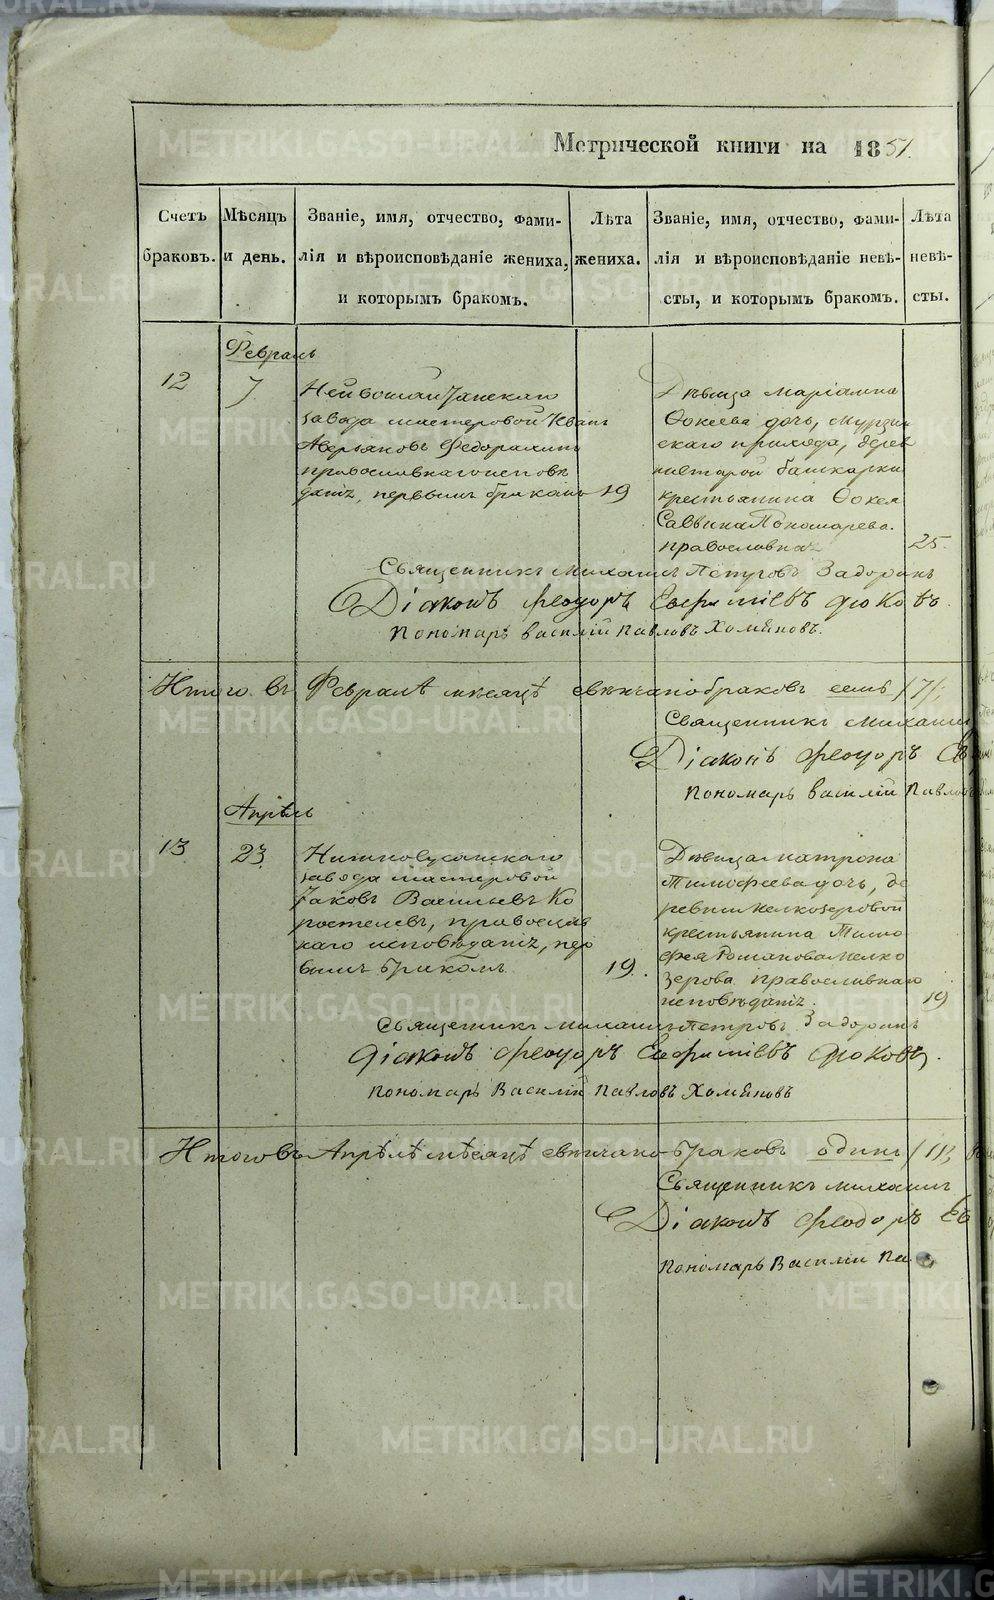 Метрической книги на 1851.
Счетъ браковъ.
Мѣсяцъ и день.
Званіе, имя, отчество, фами-
лія и вѣроисповѣданіе жениха,
и которымъ бракомъ.
Лѣта
жениха.
Званіе, имя, отчество, фами-
лія и вѣроисповѣданіе невѣ-
сты, и которымъ бракомъ.
Лѣта
невѣ-
сты.
Февраль
12
7.
Нейвошайтанскаго
завода мастеровой Иванъ
Аверьяновъ Федорахинъ
православнаго исповѣ
данія, первымъ бракомъ
19
Дѣвица Маріамна
Ѳокеева дочь, Мурзин
скаго прихода, дерев
ни старой башкарки
крестьянина Ѳокея
Саввина Пономарева.
православная
25.
Священникъ Михаилъ Петровъ Задоринъ
Діаконъ Феодоръ Евфиміевъ Дюковъ.
Пономарь Василій Павловъ Хомяковъ.
Итого въ Февралѣ мѣсяцѣ свѣнчано браковъ семь /7/;
Священникъ Михаилъ
Діаконъ Феодоръ Ев
Пономарь Василій Павловъ
Апрѣль
13
23.
Нижнесусанскаго
завода мастеровой
Яковъ Васильевъ Ко
ростелевъ, православ
наго исповѣданія, пер
вымъ бракомъ
19.
Дѣвица Матрона
Тимофеева дочь, де
ревни мелкозеровой
крестьянина Тимо
фея Романова Мелко
зерова православнаго
исповѣданія.
19
Священникъ Михаилъ Петровъ Задоринъ
Діаконъ Феодоръ Евфиміевъ Дюковъ.
Пономарь Василій Павловъ Хомяковъ
Итого въ Апрѣлѣ мѣсяцѣ свѣнчано браковъ одинъ /1/;
Священникъ Михаилъ
Діаконъ Феодоръ Ев
Пономарь Василій Па
METRIKI.GASO-URAL.RU